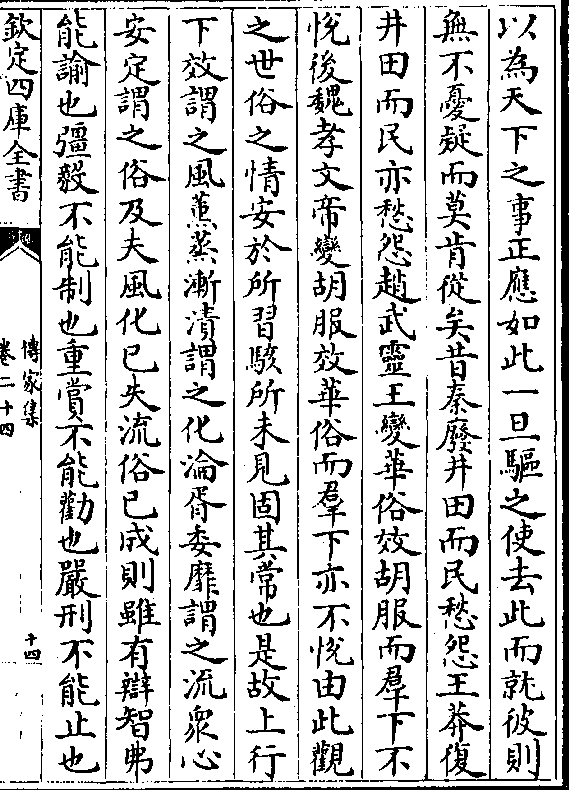 以為天下之事正應如此一旦驅之使去此而就彼則
無不憂疑而莫肯從矣昔秦廢井田而民愁怨王莽復
井田而民亦愁怨趙武靈王變華俗效胡服而羣下不
悅後魏孝文帝變胡服效華俗而羣下亦不悅由此觀
之世俗之情安於所習駭所未見固其常也是故上行
下效謂之風薫蒸漸漬謂之化淪胥委靡謂之流衆心
安定謂之俗及夫風化已失流俗已成則雖有辯智弗
能諭也彊毅不能制也重賞不能勸也嚴刑不能止也
欽定四庫全書
傳家集
卷二十四
十四